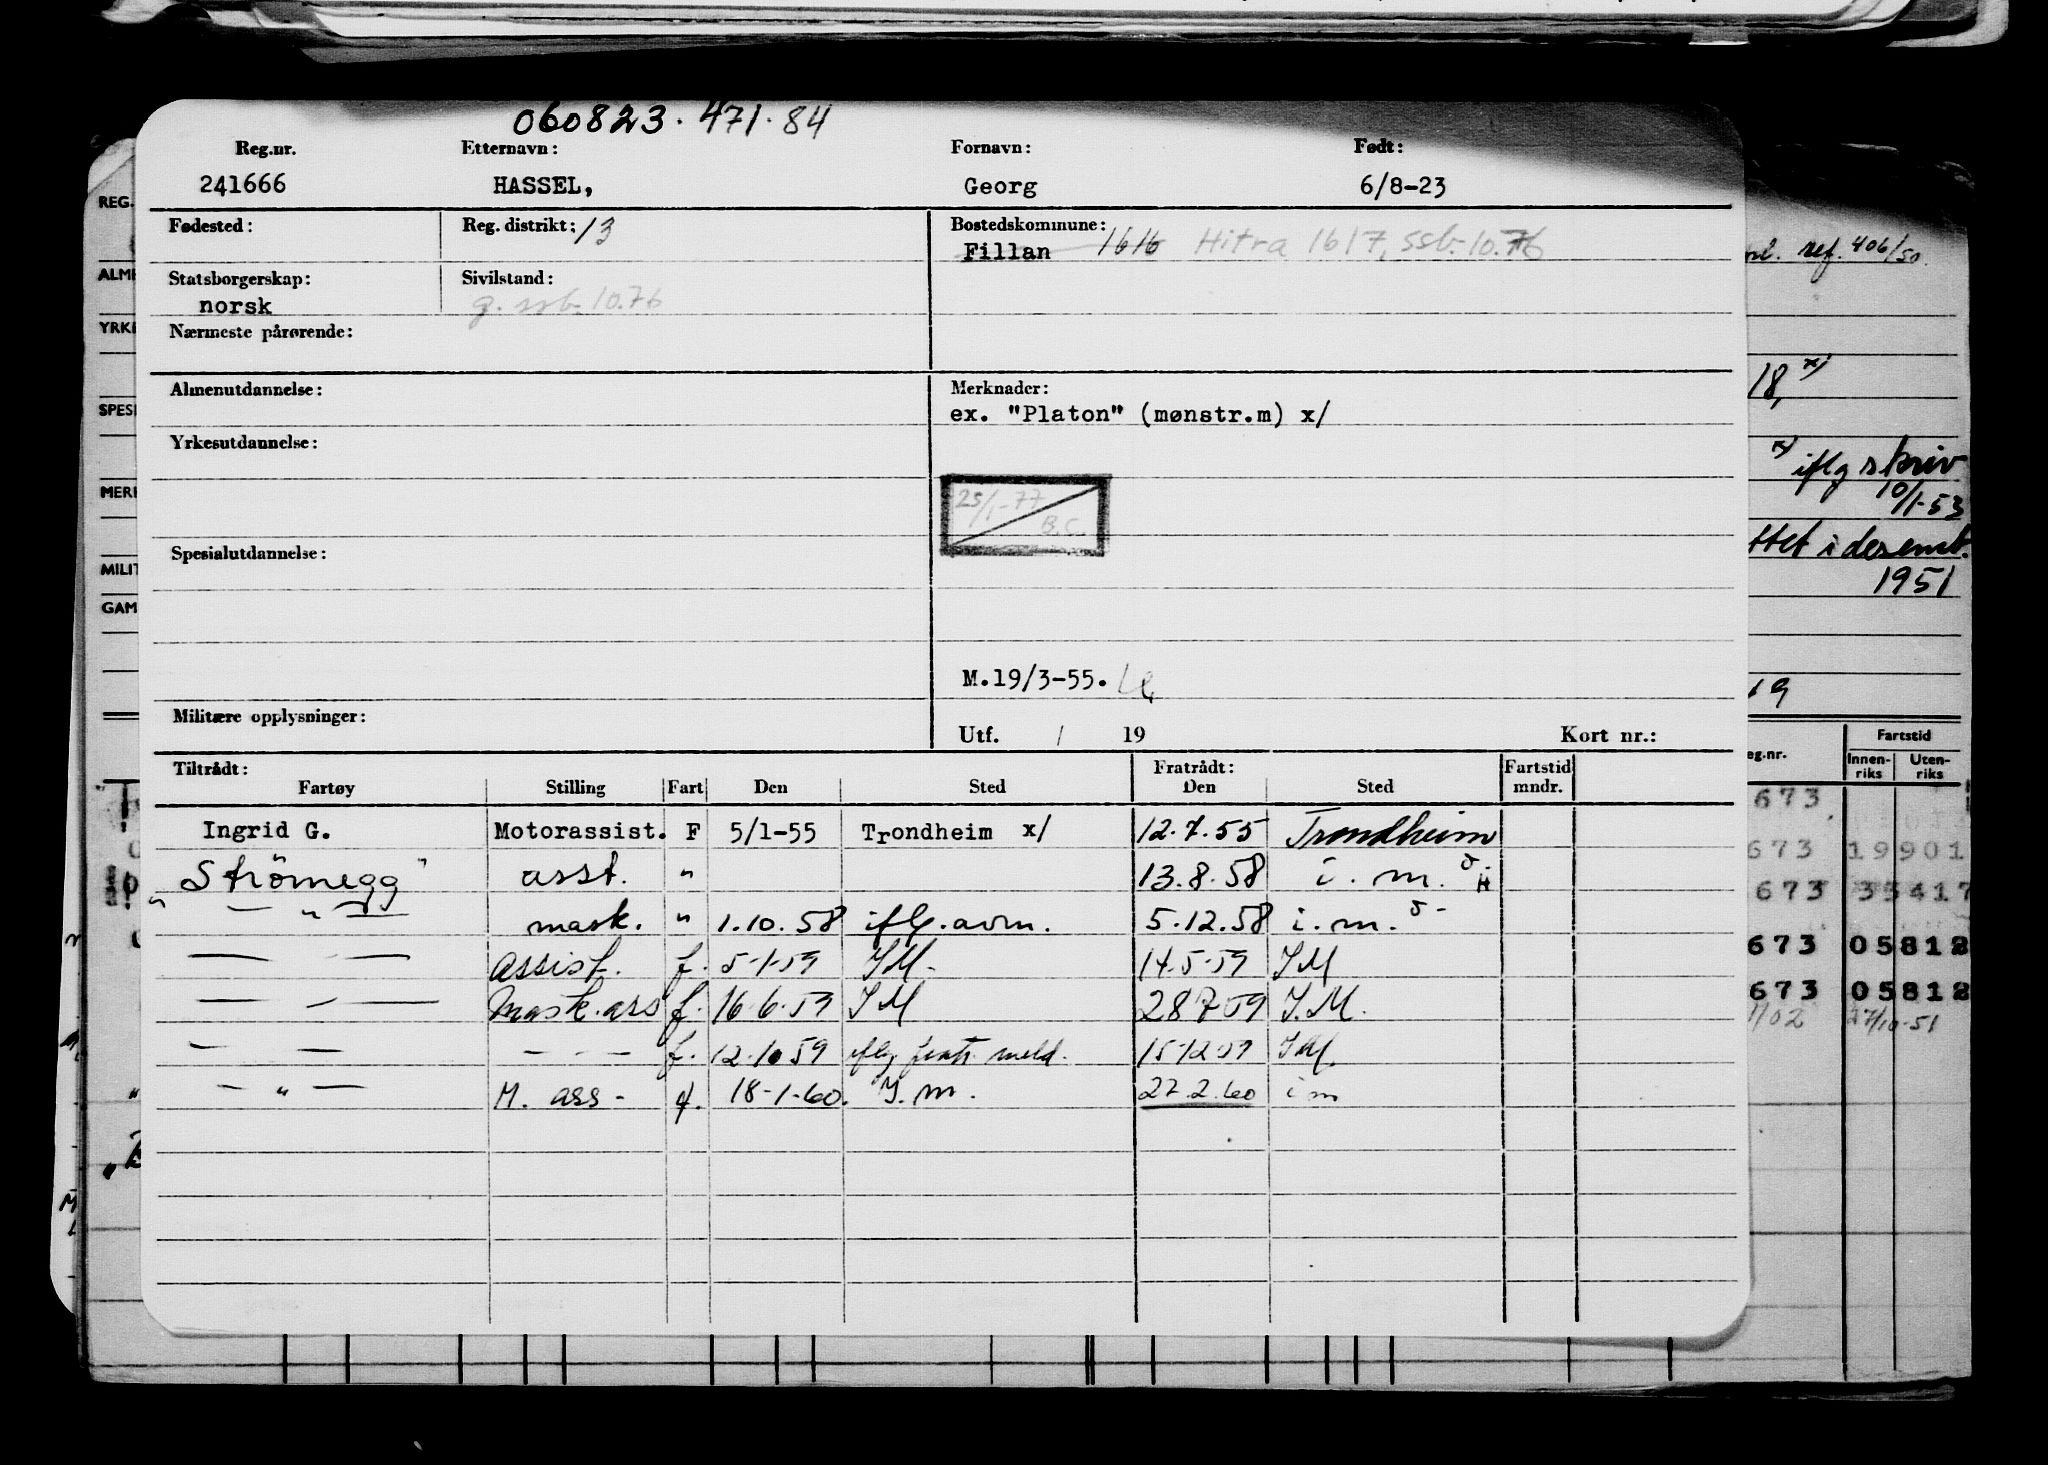 060823. 471. 84
Reg.nr. Etternavn: Fornavn: Født:
241666 HASSEL, Georg 6/8-23
Fødested: Reg. distrikt: 13 Bostedskommune:
Fillan 1616 Hitra 1617, ssb. 10.76
Statsborgerskap: Sivilstand:
norsk g. ssb. 10.76
Nærmeste pårørende:
Almenutdannelse: Merknader:
ex. "Platon" (mønstr.m) x/
Yrkesutdannelse:
25/1-77
B.C.
Spesialutdannelse:
M.19/3-55.
Militære opplysninger: Utf. / 19 Kort nr.:
Tiltrådt: Fratrådt: Fartstid
Fartøy Stilling Fart Den Sted Den Sted mndr.
Ingrid G. Motorassist. F 5/1-55 Trondheim x/ 12.7.55 Trondheim
"Strömegg" asst. " 13.8.58 i. m.
— " — mask. " 1.10.58 iflg. avm. 5.12.58 i. m.
— — assist. f. 5-1-59 IM. 14-5-59 IM
— — Mask.ass f. 16.6.59 IM 28 7 59 I.M.
— — — - - f. 12.10 59 iflg fratr. meld. 15-12-59 IM
— " — M. ass - f. 18-1-60. I. m. 27.2.60 i m
REG.
ALME
YRKE
SPESI
MERK
MILIT
GAM
ref. 406/50.
18, x)
x) iflg skriv
10/1-53
ttet i desemb.
1951
19
eg.nr. Fartstid
Innen-riks Uten-riks
673
673 19901
673 35417
673 05812
673 05812
1/02 27/10-51